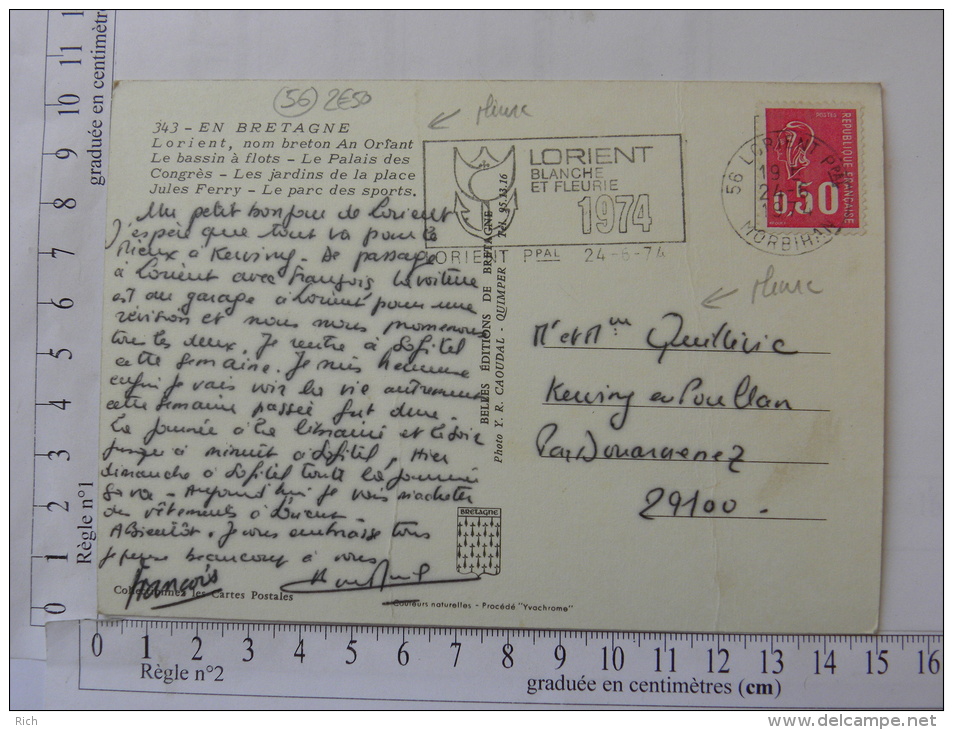 (56) 2E50
343 - EN BRETAGNE
Lorient, nom breton An Oriant
Le bassin à flots - Le Palais des
Congrès - Les jardins de la place
Jules Ferry - Le parc des sports.
pliure
LORIENT
BLANCHE
ET FLEURIE
1974
LORIENT PPAL 24-6-74
56 LORIENT PPAL
19
24-6
MORBIHAN
REPUBLIQUE FRANÇAISE
0,50
Un petit bonjour de Lorient
J'espère que tout va pour le
mieux à Kerving. De passage
à Lorient avec François la voiture
est au garage à Lorient pour une
révision et nous nous promenons
tous les deux. Je rentre à Sofitel
cette semaine. Je suis heureuse
enfin je vais voir la vie autrement
cette semaine passée fut dure.
La journée à la librairie et le soir
jusqu'à minuit à Sofitel. Hier
dimanche à Sofitel toute la journée
ça va - Aujourd'hui je vais m'acheter
des vêtements à Lorient
A Bientôt. Je vous embrasse tous
Je pense beaucoup à vous
François
pliure
Mr et Mme Quillivic
Kerving en Poullan
Par Douarnenez
29100.
BELLES ÉDITIONS DE BRETAGNE
Photo Y. R. CAOUDAL - QUIMPER - Tél. 95.33.16
BRETAGNE
Collectionnez les Cartes Postales
Couleurs naturelles - Procédé "Yvachrome"
Règle n°1
graduée en centimètre
0 1 2 3 4 5 6 7 8 9 10 11
0 1 2 3 4 5 6 7 8 9 10 11 12 13 14 15 16
Règle n°2
graduée en centimètres (cm)
Rich
delcampe.net